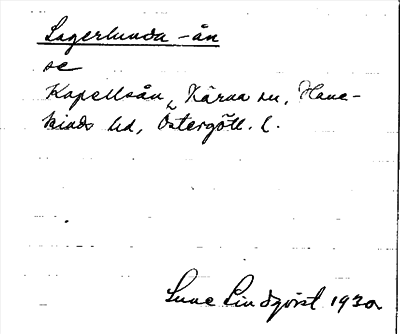 Lagerlunda-ån
se
Kapellsån, Kärna sn, Hane-
kinds hd, Östergötl. l.
Sune Lindqvist 1930